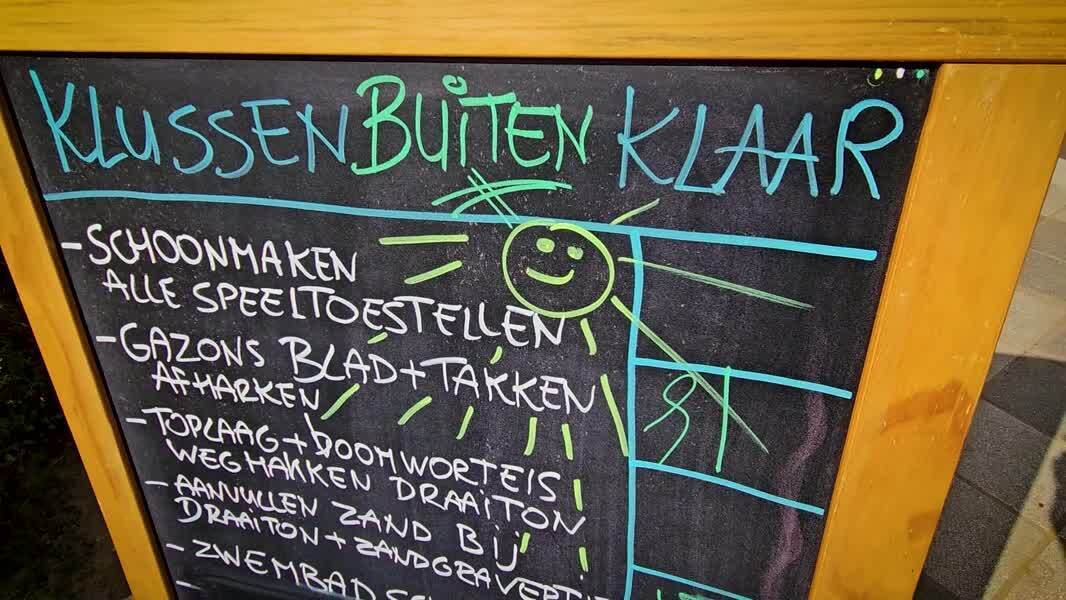 KLUSSEN BUITEN KLAAR
- SCHOONMAKEN
ALLE SPEELTOESTELLEN
- GAZONS BLAD + TAKKEN
AFHARKEN
- TOPLAAG + BOOMWORTELS
WEGHAKKEN DRAAITON
- AANVULLEN ZAND BIJ
DRAAITON +
- ZWEMBAD
-